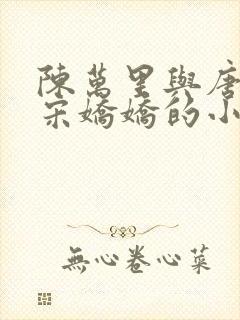 陳萬里與唐
宋嬌嬌的小
無心卷心菜